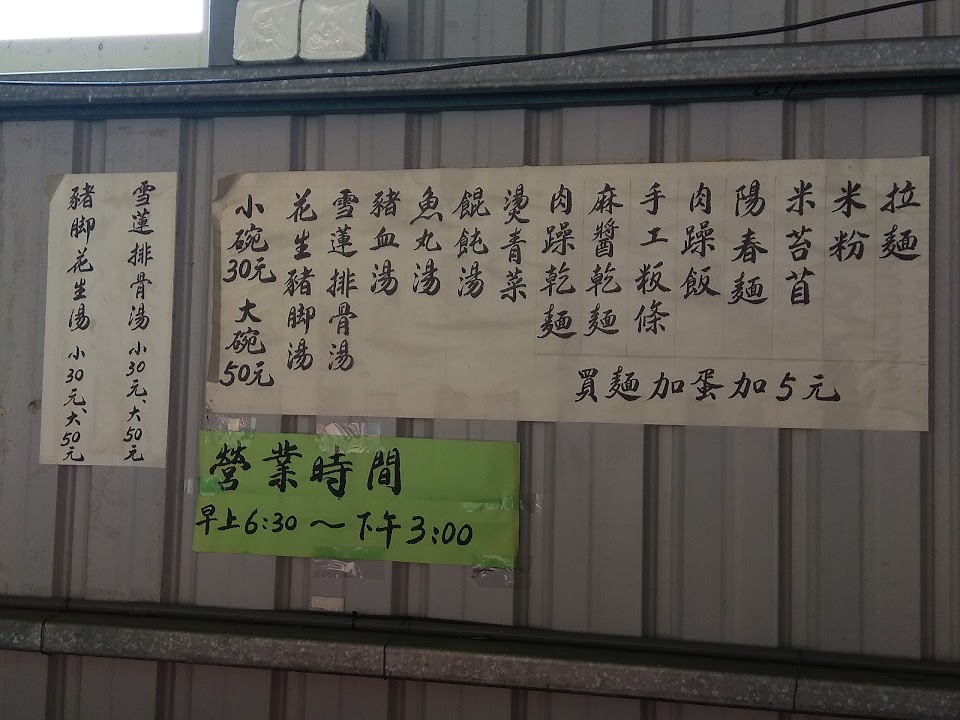 拉麵
米粉
米苔苜
陽春麵
肉躁飯
手工粄條
麻醬乾麵
肉躁乾麵
燙青菜
餛飩湯
魚丸湯
豬血湯
雪蓮排骨湯
花生豬脚湯
小碗30元 大碗50元
買麵加蛋加5元
雪蓮排骨湯 小30元、大50元
豬脚花生湯 小30元、大50元
營業時間
早上6:30～下午3:00